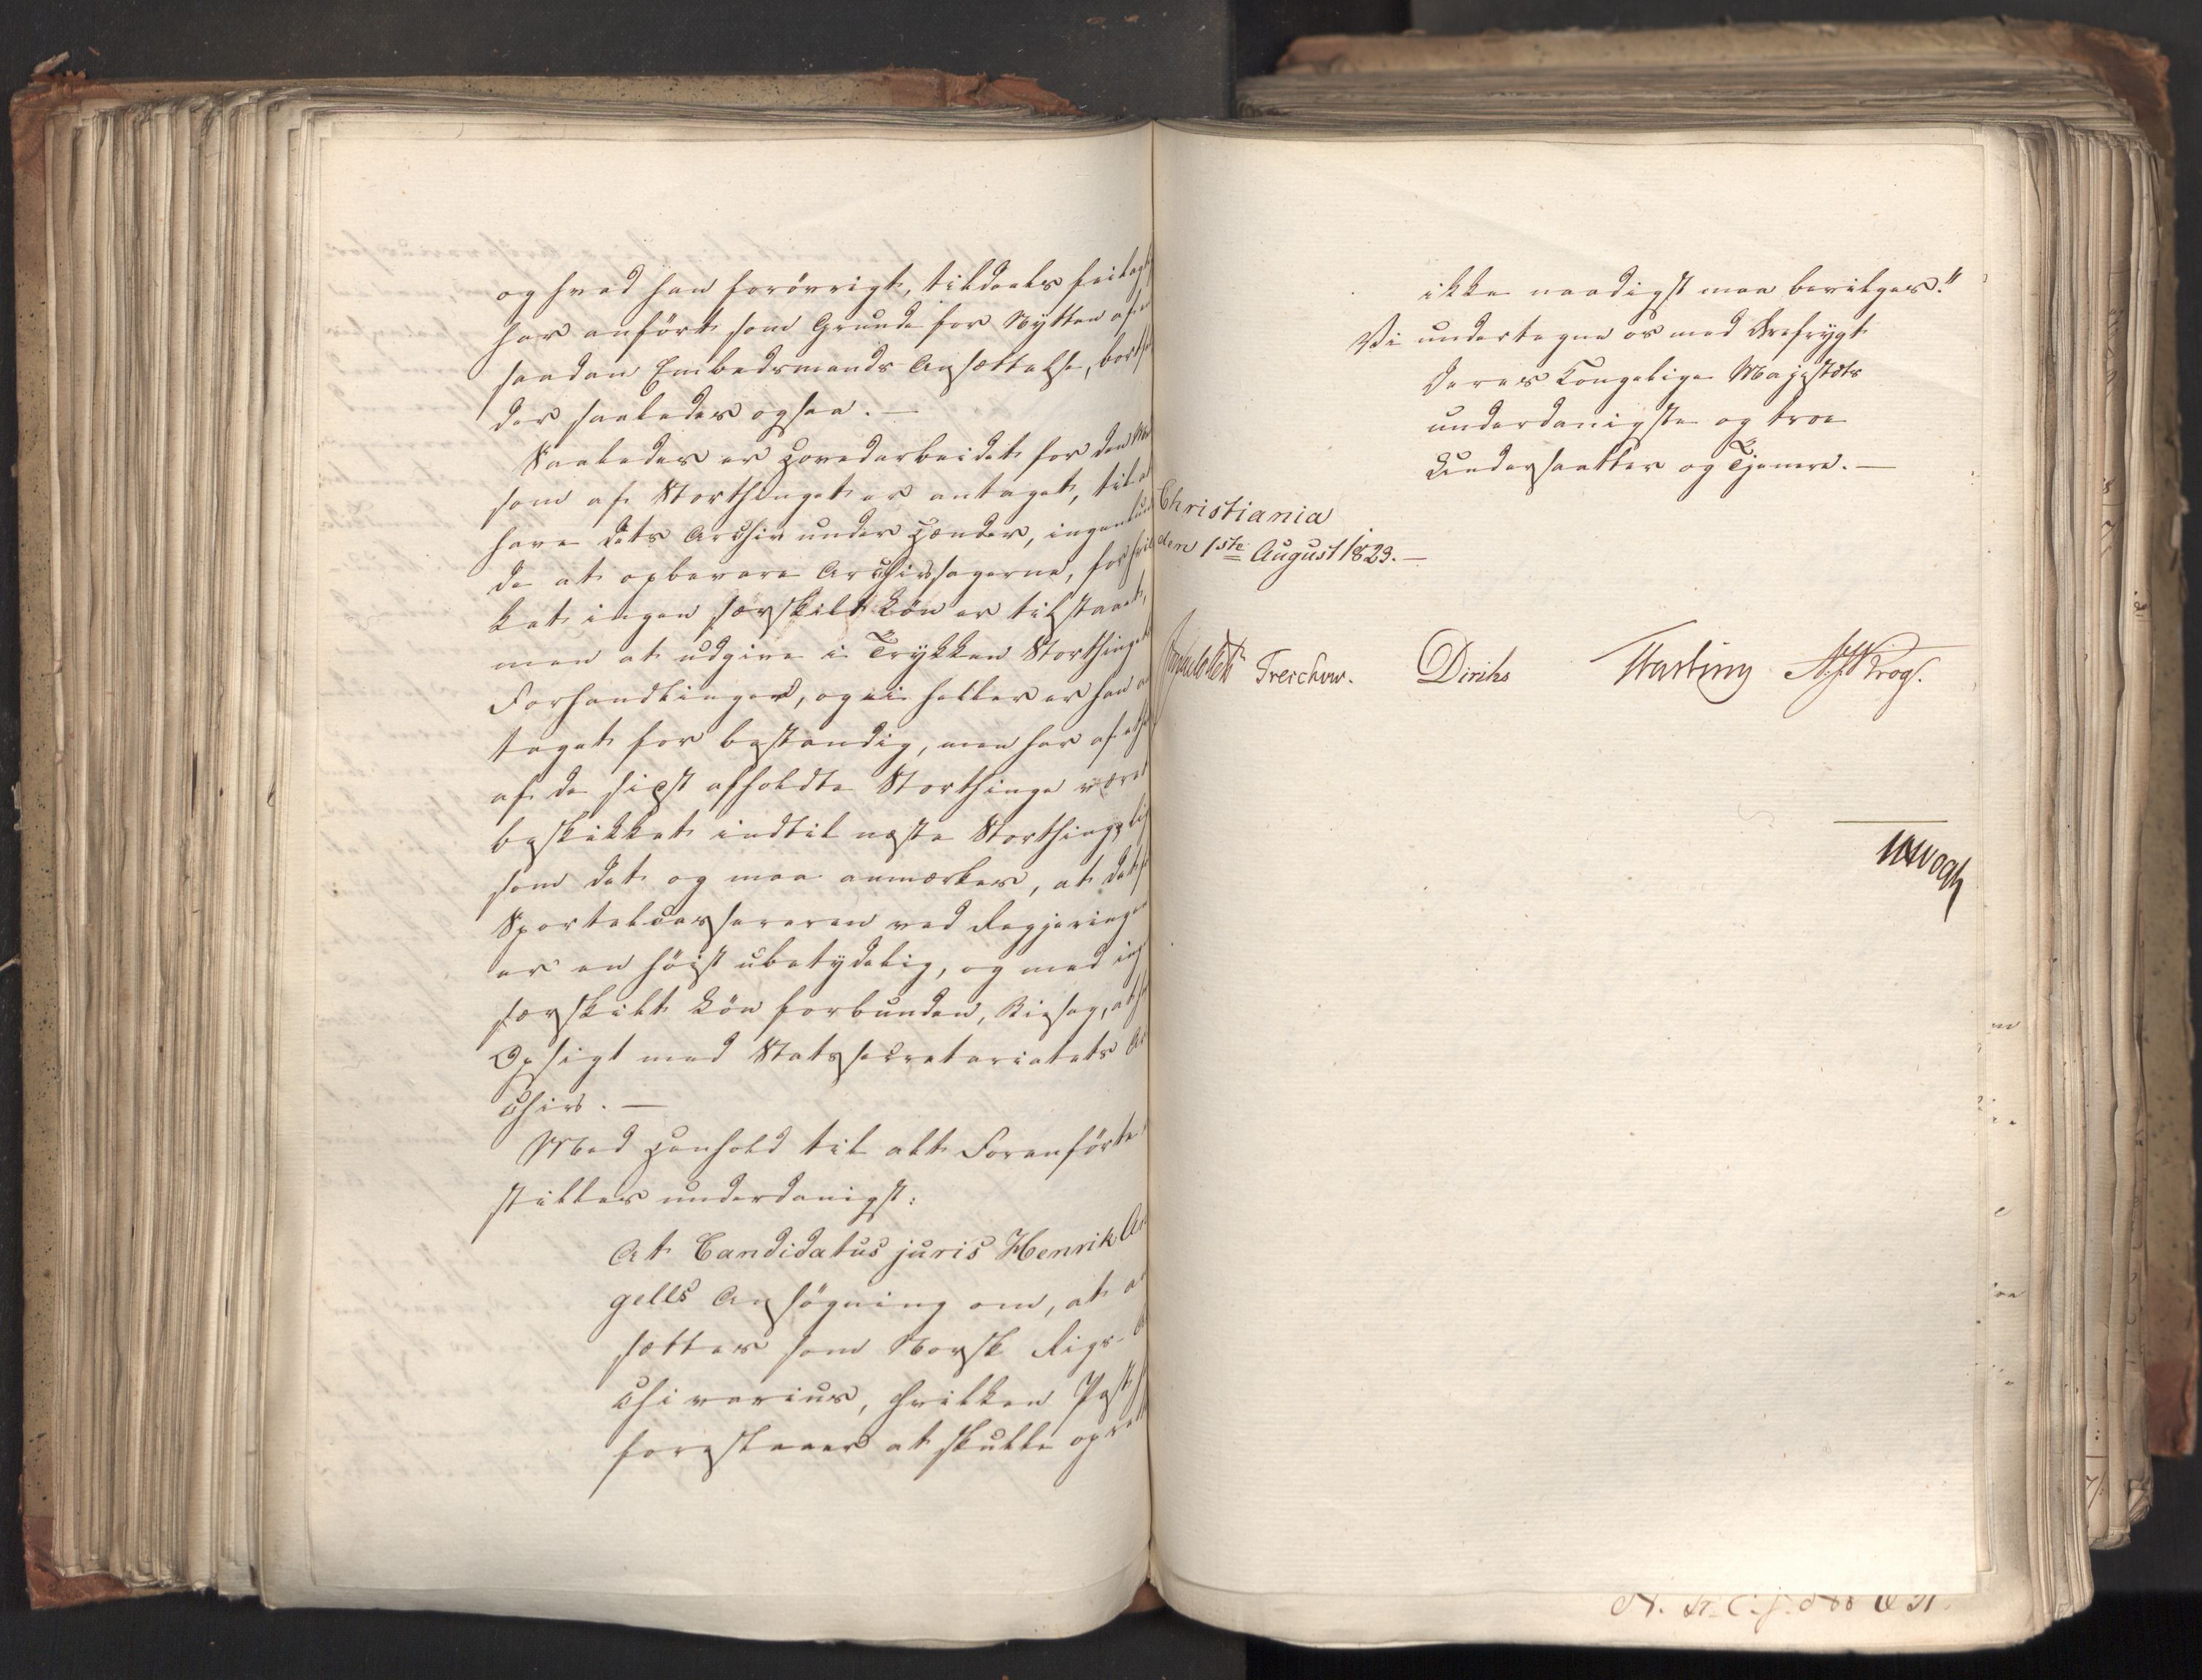 og hvad han forövrigt, tildeels feilagt
har anfört som Grunde for Nytten af en
saadan Embedsmands Ansættelse, bortfal
der saaledes ogsaa. —
Saaledes er Hovedarbeidet for den
som af Storthinget er antaget, til at
have dets Archiv under Hænder, ingenlun
de at opbevare Archivsagerne, for hvil
ket ingen særskilt Lön er tilstaaet,
men at udgive i Trykken Storthingets
Forhandlinger, og ei heller er han an
taget for bestandig, men har af
af de sidst afholdte Storthinge været
beskikket indtil næste Storthing, lige
som det og maa anmærkes, at det for
Sportelcassereren ved Regjeringen
er en höist ubetydelig, og med ingen
særskilt Lön forbunden, Biesag, at have
Opsigt med Statssecretariatets Ar
chiv. —
Med Henhold til alt Foranförte
stilles underdanigst:
At Candidatus juris Henrik An
gells Ansögning om, at an
sættes som Norsk Rigs-Ar
chivarius, hvilken Post han
foreslaaer at skulle oprettes
ikke naadigst maa bevilges."
Vi undertegne os med Ærefrygt
Deres Kongelige Majestæts
underdanigste og troe
Undersaatter og Tjenere. —
Christiania
den 1ste August 1823. —
Treschow. Diriks Hartung N. J. Krog.
Vogt